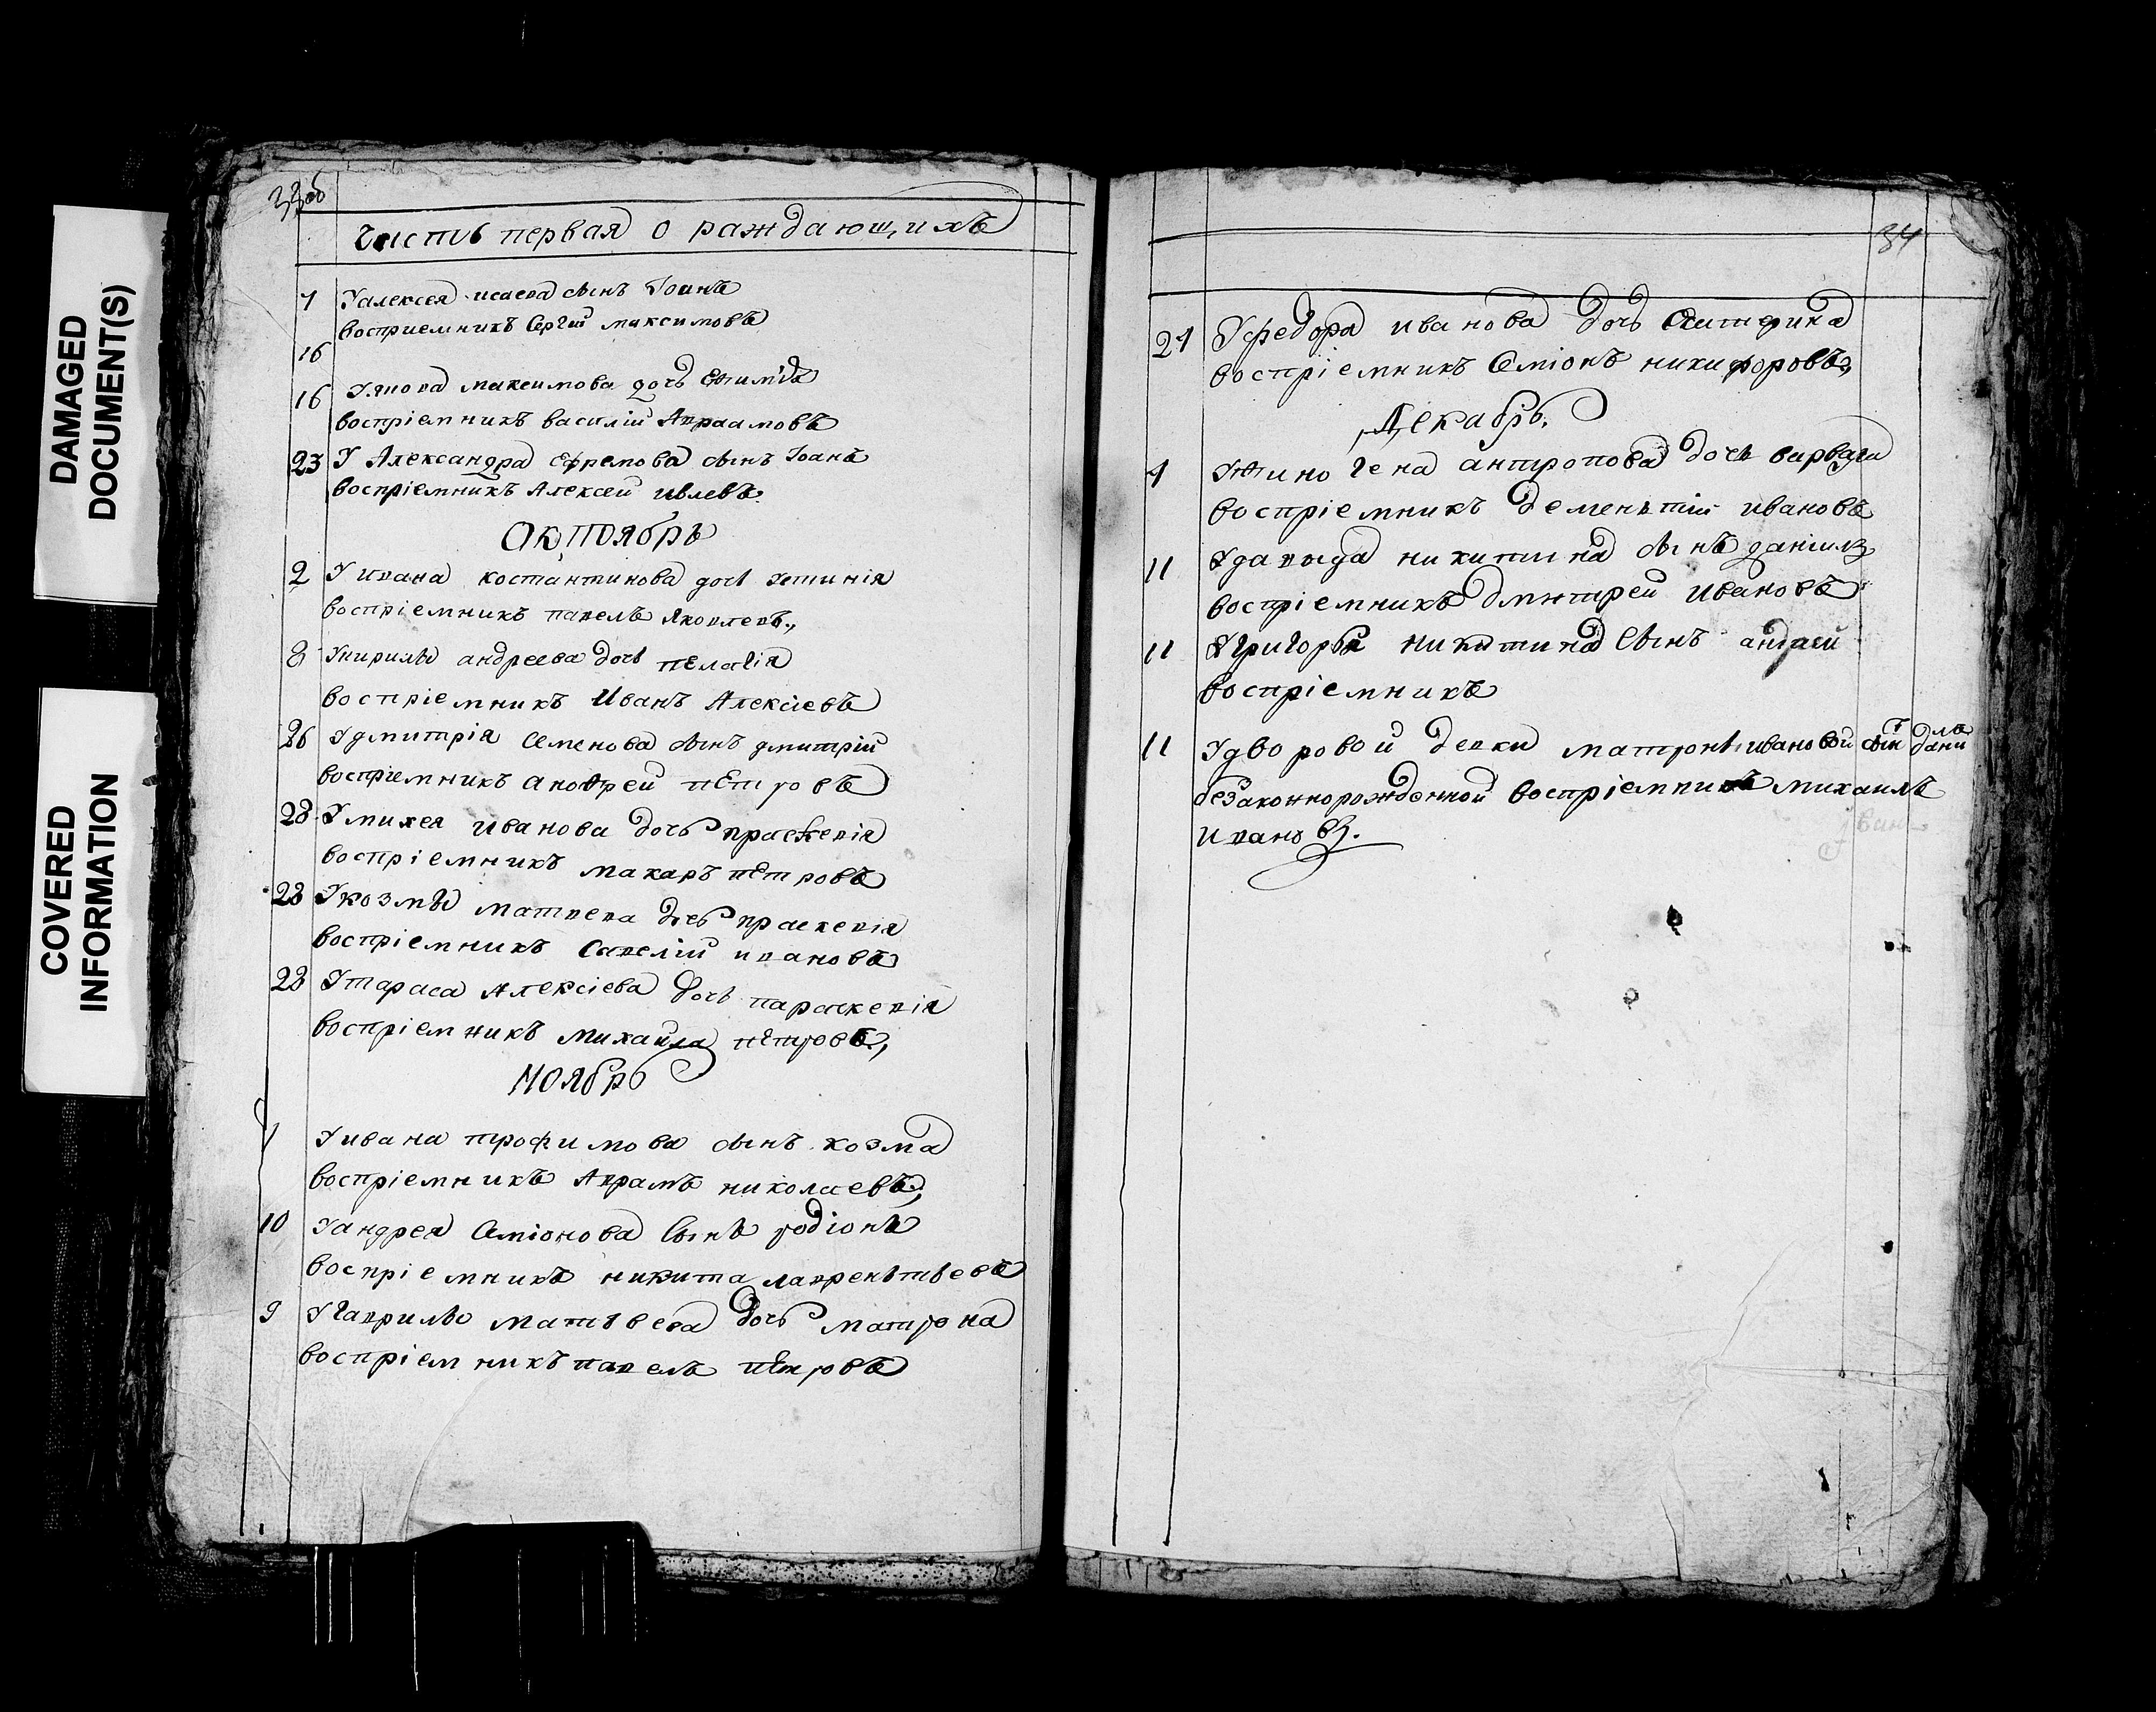 DAMAGED
DOCUMENT(S)
COVERED
INFORMATION
33об
Часть первая о раждающихъ
1 У алексея исаева сынъ Іоаннъ
восприемникъ Сергій максимовъ
16
16 У якова максимова дочь
воспріемникъ василій Авраамовъ
23 У Александра ефремова сынъ Іоанъ
воспріемникъ Алексей ивлевъ
Октоябрь
2 У ивана костантинова дочь устинія
воспріемникъ павелъ яковлевъ
8 У кирилы андреева дочь пелагія
воспріемникъ Иванъ Алексіевъ
26 У дмитрія семенова сынъ дмитрій
воспріемникъ андрей петровъ
28 У михея иванова дочь праскевія
воспріемникъ макаръ петровъ
28 У козмы матвева дочь праскевія
воспріемникъ савелій ивановъ
28 У тараса Алексіева дочь параскевія
воспріемникъ михайла петровъ
Ноябрь
1 У ивана трофимова сынъ козма
воспріемникъ Аврамъ николаевъ
10 У андрея Семіонова сынъ родіонъ
воспріемникъ никита лаврентьевъ
9 У гаврилы матвеева дочь матрона
воспріемникъ павелъ петровъ
34
21 У федора иванова дочь Екатерина
воспріемникъ Семіонъ никифоровъ
Декабрь
4 антропова дочь варвара
воспріемникъ дементій ивановъ
11 У давыда никитина сынъ даніилъ
воспріемникъ дмитрей ивановъ
11 У григорья никитина сынъ андрей
воспріемникъ
11 У дворовой девки матроны ивановой сынъ данилъ
безаконнорожденной воспріемникъ михаилъ
ивановъ.